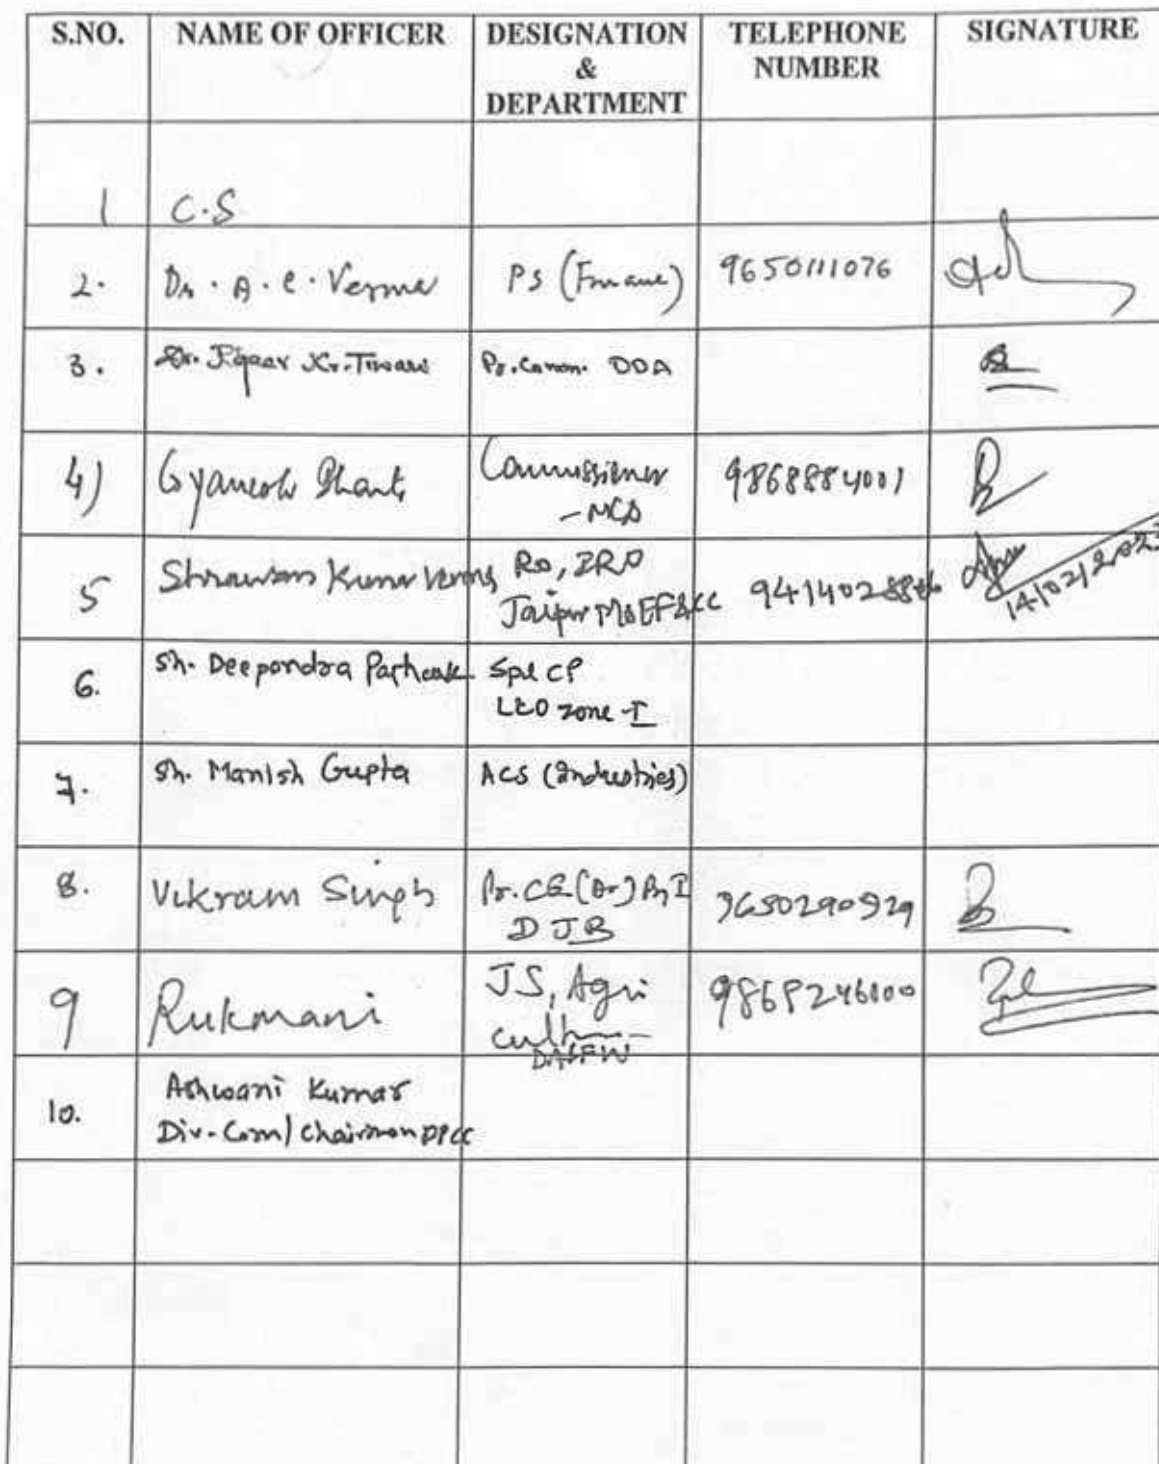 S.NO. NAME OF OFFICER DESIGNATION & DEPARTMENT TELEPHONE NUMBER SIGNATURE
1 C.S
2. Dr. A. C. Verma PS (Finance) 9650111076
3. Dr. Kr. Tiwari Pr. Comm. DDA
4) Gyanesh Bharti Commissioner 9868884001
- MCD
5 Kumar Verma RO, IRO
Jaipur MoEF&CC 14/02/2023
6. Sh. Deependra Pathak Spl CP
L&O Zone-I
7. Sh. Manish Gupta ACS (Industries)
8. Vikram Singh 9650290529
DJB
9 Rukmani JS, Agri
culture
DA&FW
10. Ashwani Kumar
Div. Com/Chairman DPCC